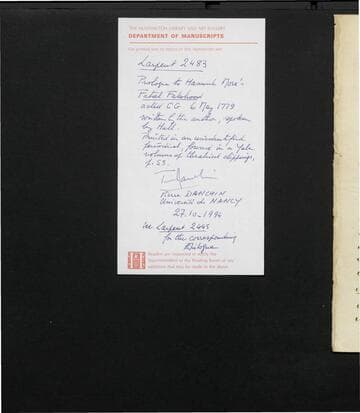 THE HUNTINGTON LIBRARY AND ART GALLERY
DEPARTMENT OF MANUSCRIPTS
Larpent 2483
Prologue to Hannah More's
Fatal Falsehood
acted CG 6 May 1779
written by the author, spoken
by Hull.
Printed in an unidentified
periodical, found in a Yale
volume of theatrical clippings,
f. 53.
Pierre DANCHIN
Université de NANCY
27.10.1994
see Larpent 2445
for the corresponding
Epilogue
Readers are requested to notify the
Superintendent of the Reading Room of any
additions that may be made to the above